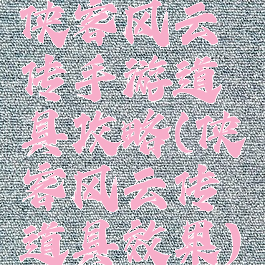 侠客风云
传手游道
具攻略(侠
客风云传
道具效果)